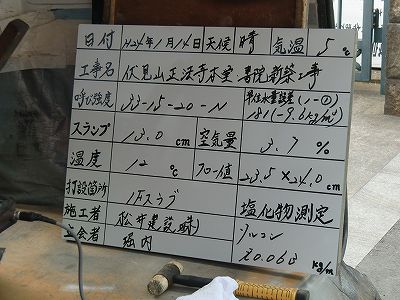 日付 H24年1月14日 天候 晴 気温 5℃
工事名 伏見山正法寺本堂 書院新築工事
呼び強度 33-15-20-N 単位水量誤差(1-②) 181(-9.6kg/m³
スランプ 13.0 cm 空気量 3.7 %
温度 12 ℃ フロー値 23.5×24.0 cm
打設箇所 1Fスラブ 塩化物測定
施工者 松井建設(株) ソルコン
立会者 堀内 0.06 kg/m³